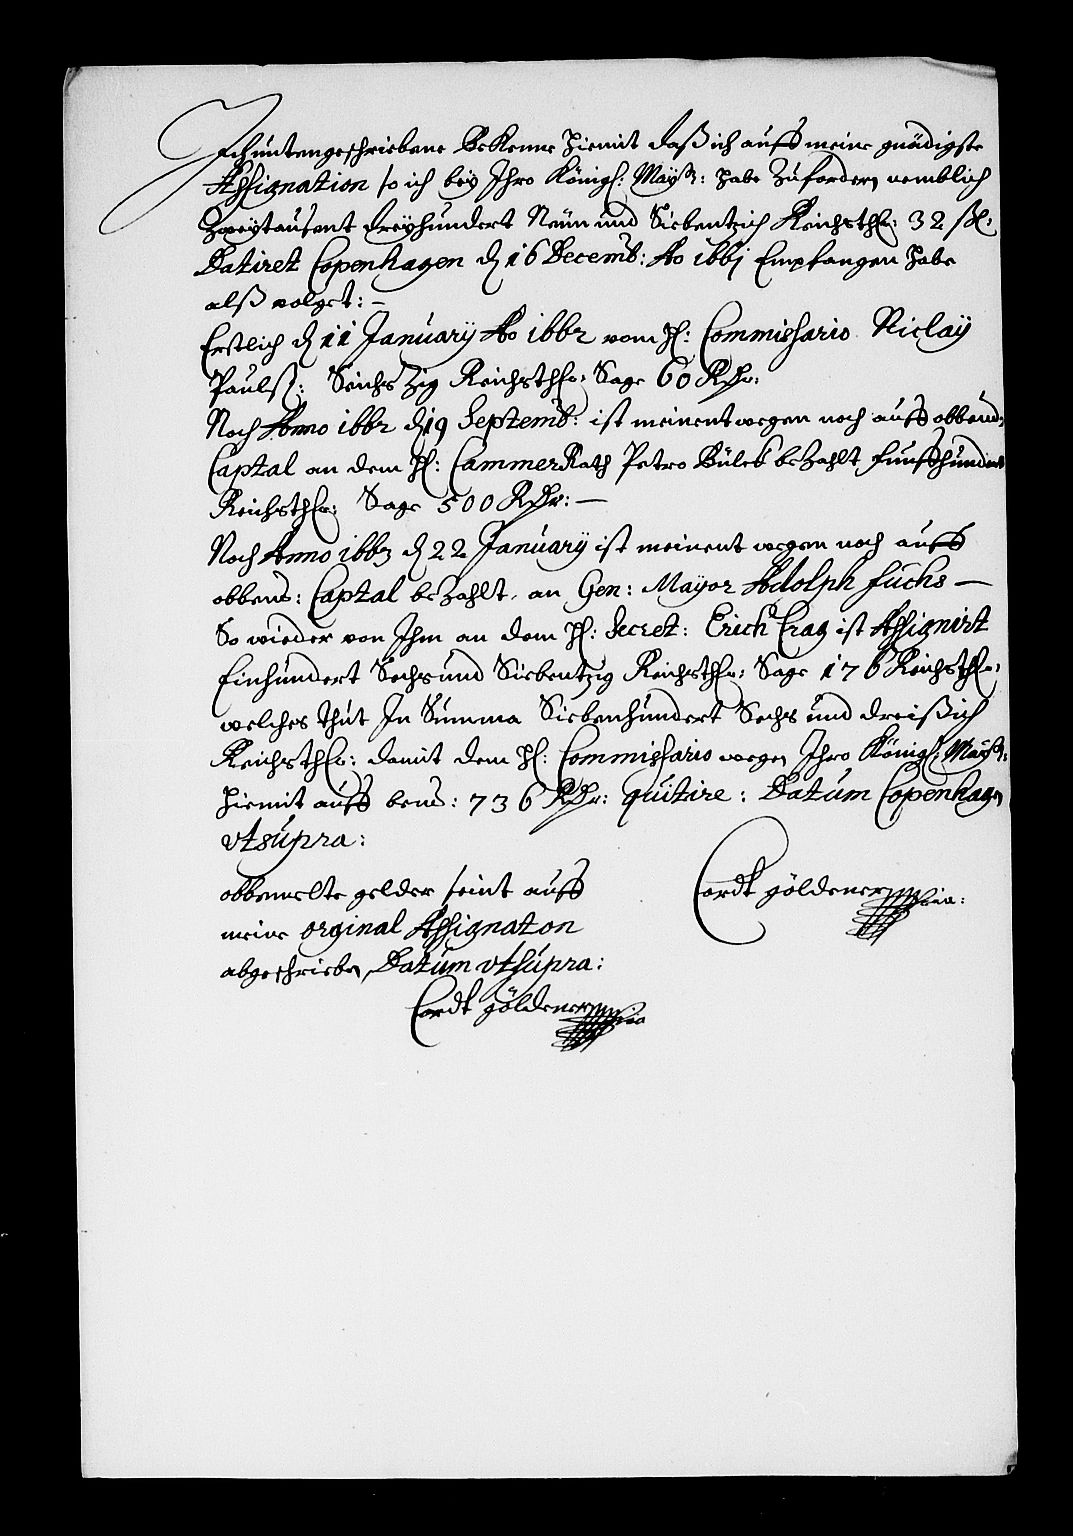 Ich untengeschriebene Bekenne hiemit daß ich auff meine gnädigste
Assignation so ich bey Ihro Königl: Mayst: habe Zufordern nemblich
Zweytausent dreyhundert Neun und Siebentzich Reichsthlr: 32 ßl:
Datiret Copenhagen d 16 Decemb: Ao 1661 Empfangen habe
alß volget: –
Erstlich d 11 January Ao 1662 vom H: Commissario Niclay
Paulß: Sechs Zig Reichsthlr: Sage 60 RDr:
Noch Anno 1662 d 19 Septemb: ist meinentwegen noch auff obbend:
Captal an dem H: Cammer Rath Petro Büleb beZahlt funffhundert
Reichsthlr: Sage 500 RDr: –
Noch Anno 1663 d 22 January ist meinentwegen noch auff
obbens: Captal beZahlt. an Gen: Mayor Adolph fuchs –
So wieder von Ihm an dem H: Secret: Erich Crag ist Assignirt
Einhundert Sechs und Siebentzig Reichsthlr: Sage 176 Reichsthlr:
welches thut In Summa Siebenhundert Sechs und dreißich
Reichsthlr: damit dem H: Commissario wegen Ihro Königl: Mayst:
hiemit auff bens: 736 RDr: quitire: Datum Copenhagen
vtsupra:
obbemelte gelder seint auff
meine orginal Assignaton
abgeschrieben, Datum vtsupra:
Cordt göldener
Cordt göldener